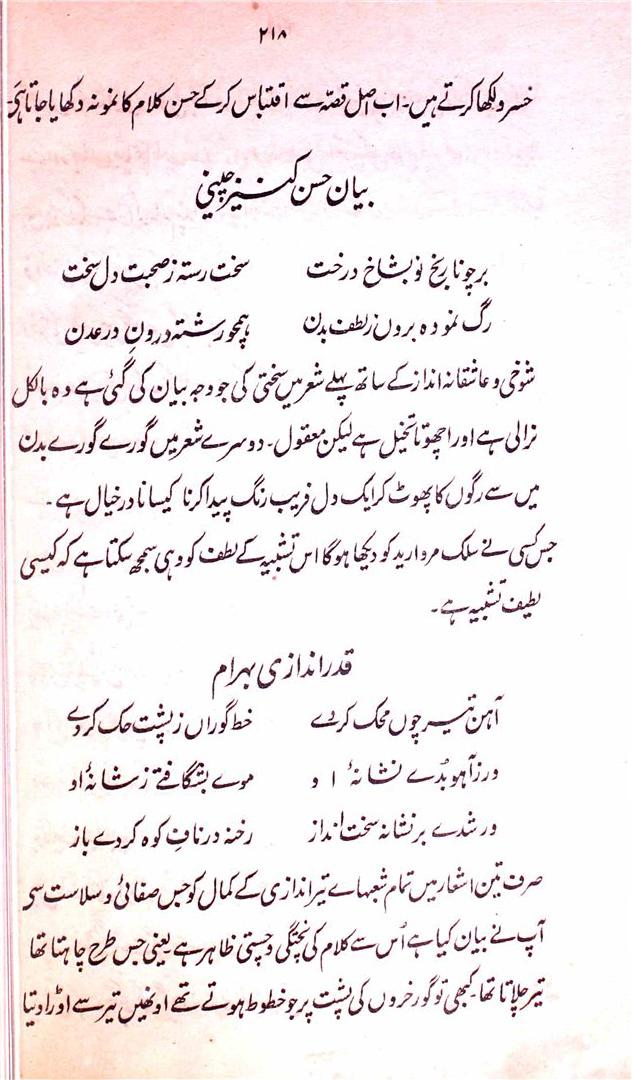 ۲۱۸
خسرو لکھا کرتے ہیں۔ اب اصل قصّہ سے اقتباس کرکے حسن کلام کا نمونہ دکھایا جاتا ہی۔
بیان حسن کنیز چینی
برچو نارنج نو بشاخ درخت سخت رستہ ز صحبت دل سخت
رگ نمودہ بروں ز لطف بدن ہمچو رشتہ درونِ درعدن
شوخی و عاشقانہ انداز کے ساتھ پہلے شعر میں سختی کی جو وجہ بیان کی گئی ہے وہ بالکل
نرالی ہے اور اچھوتا تخیل ہے لیکن معقول۔ دوسرے شعر میں گورے گورے بدن
میں سے رگوں کا پھوٹ کر ایک دل فریب رنگ پیدا کرنا کیسا نادر خیال ہے۔
جس کسی نے سلک مروارید کو دیکھا ہوگا اس تشبیہ کے لطف کو وہی سمجھ سکتا ہے کہ کیسی
لطیف تشبیہ ہے۔
قدر اندازی بہرام
آہن تیر چوں محک کردے خط گوراں ز پشت حک کردے
ور ز آہو بُدے نشانۂ او موے بشگافتے ز شانۂ او
ور شدے بر نشانہ سخت انداز رخنہ در نافِ کوہ کردے باز
صرف تین اشعار میں تمام شعبہاے تیر اندازی کے کمال کو جس صفائی و سلاست سی
آپ نے بیان کیا ہے اُس سے کلام کی پختگی و چستی ظاہر ہے یعنی جس طرح چاہتا تھا
تیر چلاتا تھا۔ کبھی تو گورخروں کی پشت پر جو خطوط ہوتے تھے اونھیں تیر سے اوڑا دیتا